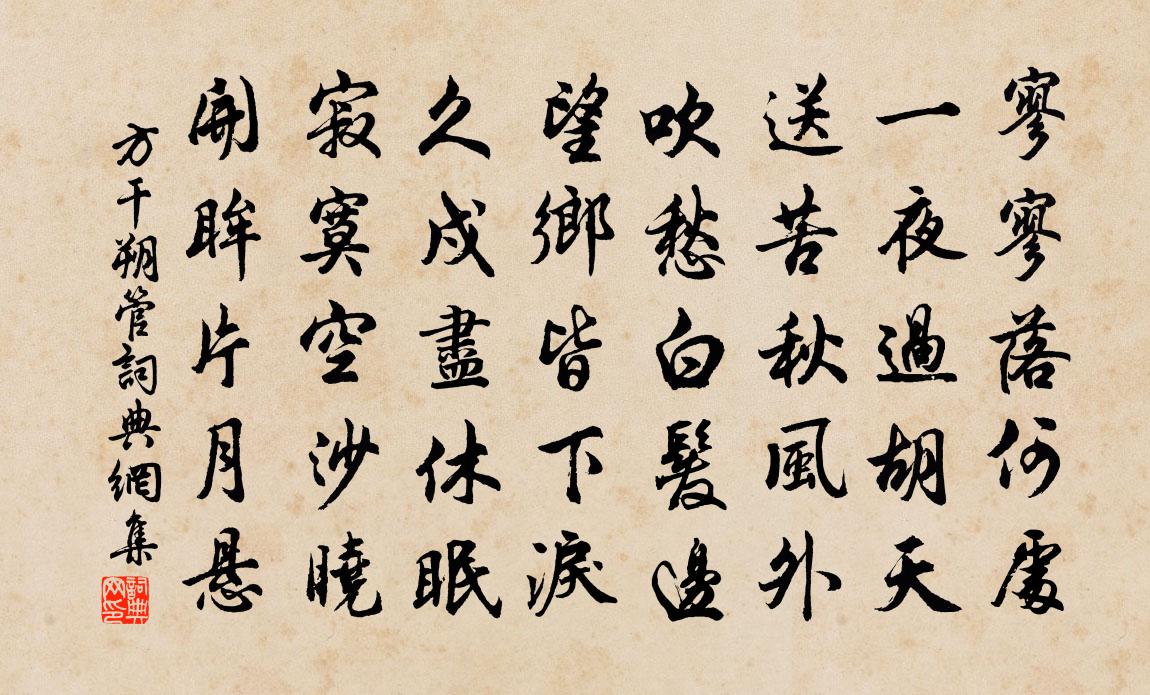 寥寥落何處
一夜過胡天
送苦秋風外
吹愁白髮邊
望鄉皆下淚
久戍盡休眠
寂寞空沙曉
開眸片月懸
方干朔管詞典網集
詞典網印